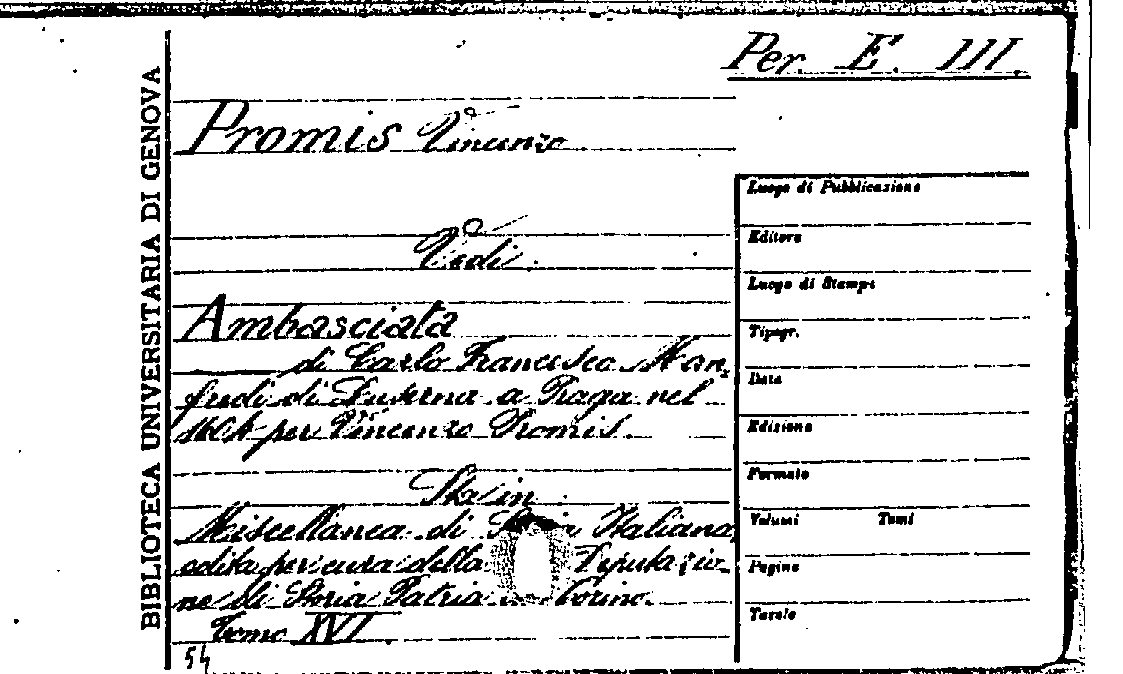 Per. E. III.
BIBLIOTECA UNIVERSITARIA DI GENOVA
Promis Vincenzo
Vedi
Ambasciata
di Carlo Francesco Man,
fredi di Luserna a Praga nel
1604 per Vincenzo Promis.
Sta in
Miscellanea di Storia Italiana,
edita per cura della Deputazio-
ne di Storia Patria in Torino.
Tomo XVI.
54
Luogo di Pubblicazione
Editore
Luogo di Stampa
Tipogr.
Data
Edizione
Formato
Volumi Tomi
Pagine
Tavole